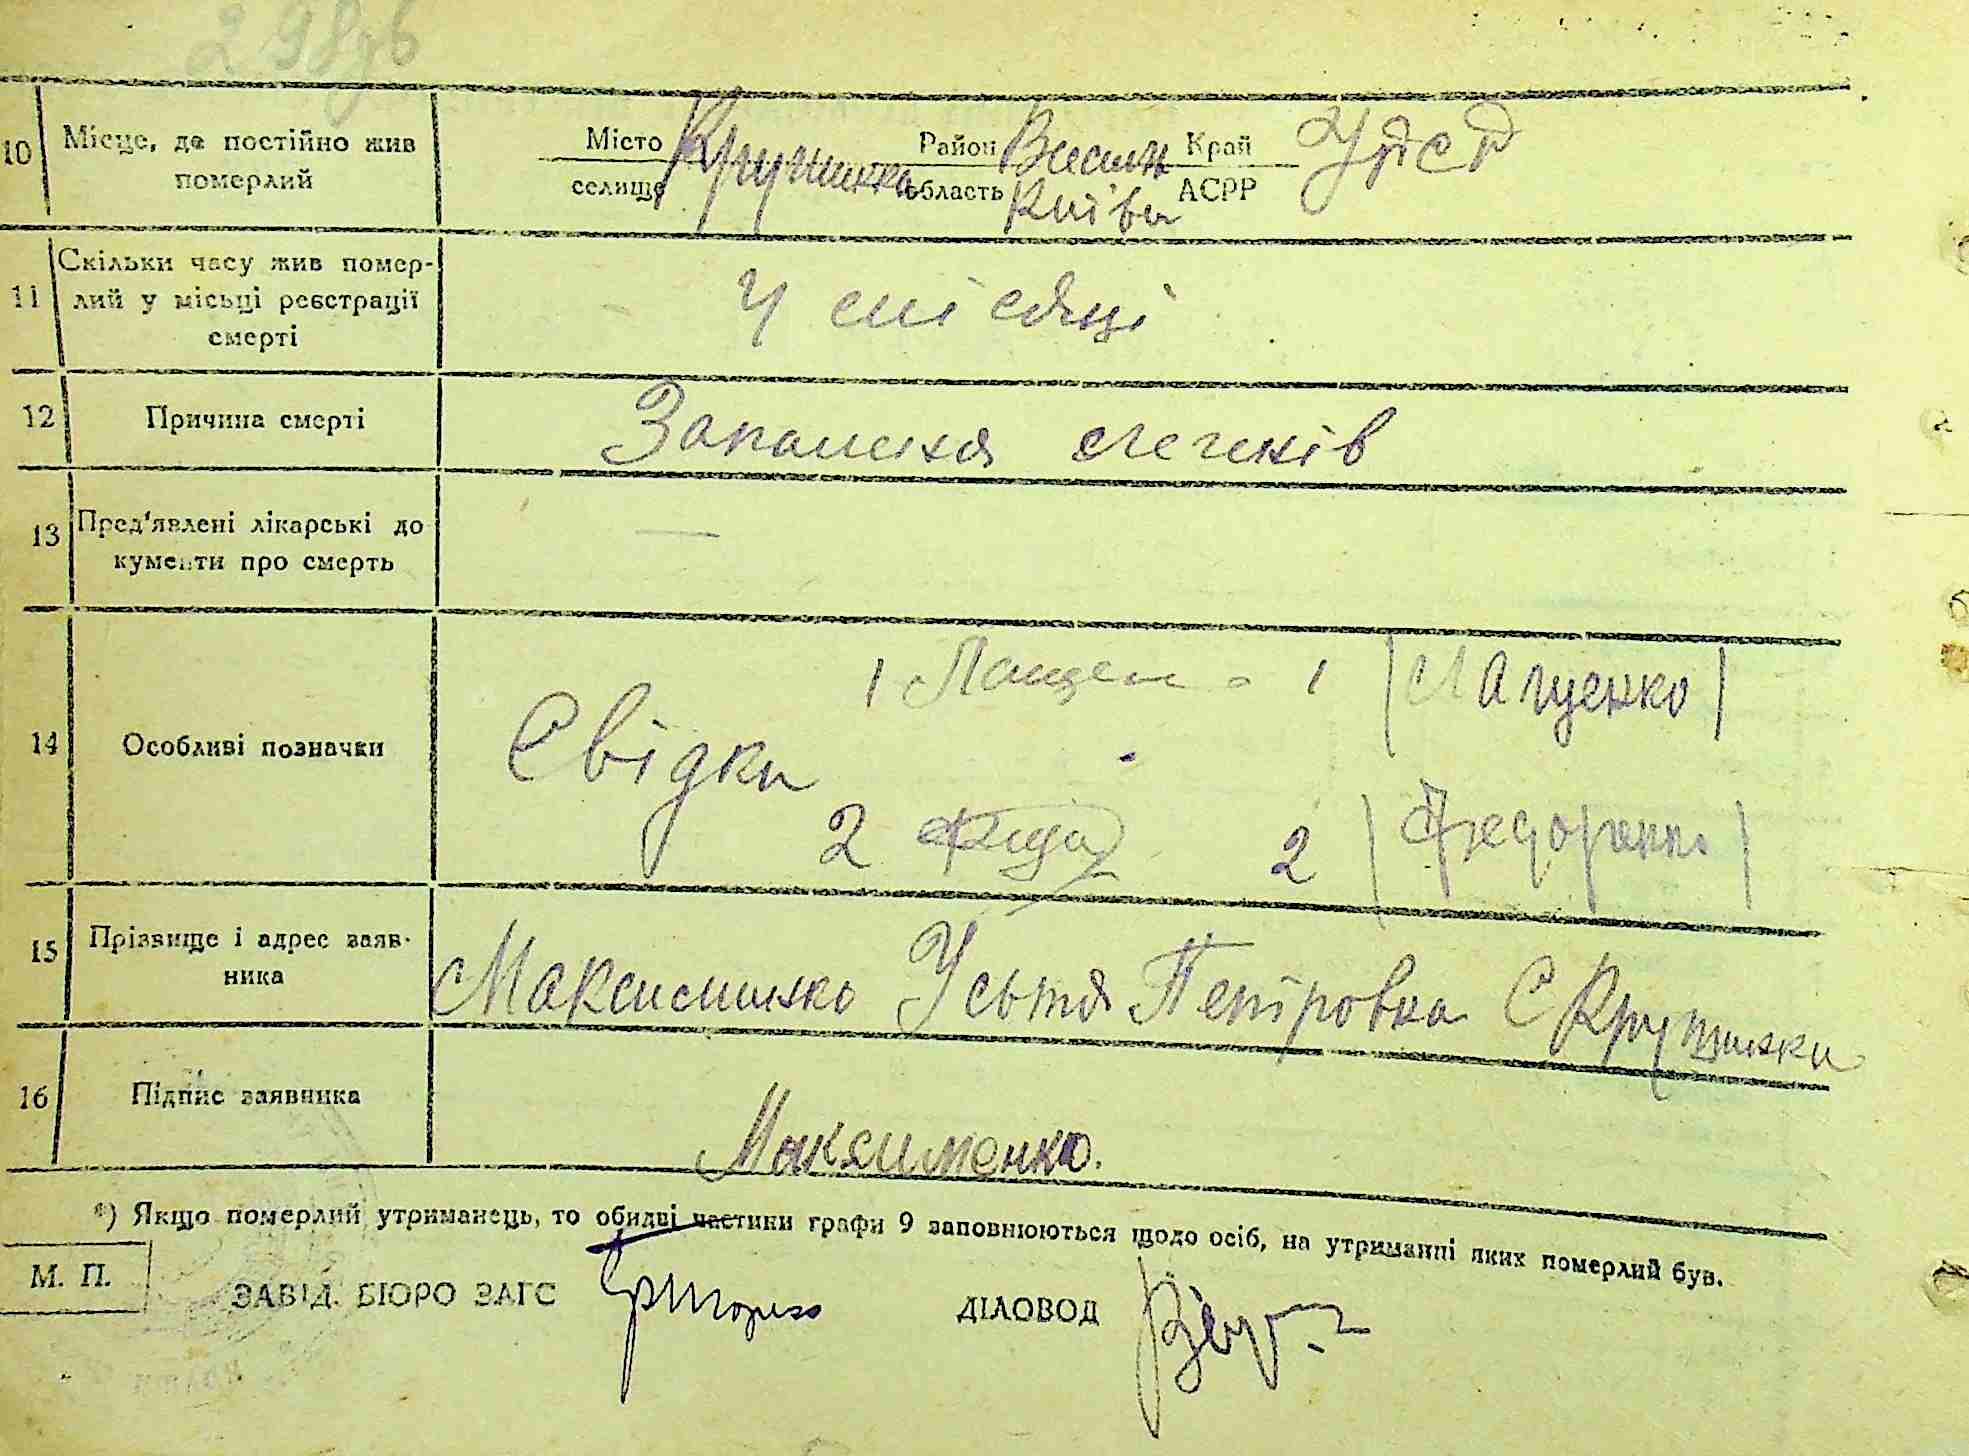 10 Місце, де постійно жив померлий
Місто Район Край УРСР
селище область Київ АСРР
11 Скільки часу жив помер-
лий у місьці реєстрації
смерті
4 місяці
12 Причина смерті Запалиня легенів
13 Пред'явлені лікарські до
кументи про смерть —
14 Особливі позначки
Свідки
1 Лащен 1 (Лащенко)
2 2 (Федоренко)
15 Прізвище і адрес заяв-
ника
Максиминко Устя Петровна С
16 Підпис заявника
Максименко.
*) Якщо померлий утриманець, то обидві частини графи 9 заповнюються щодо осіб, на утриманні яких померлий був.
М. П.
ЗАВІД. БЮРО ЗАГС ДІЛОВОД